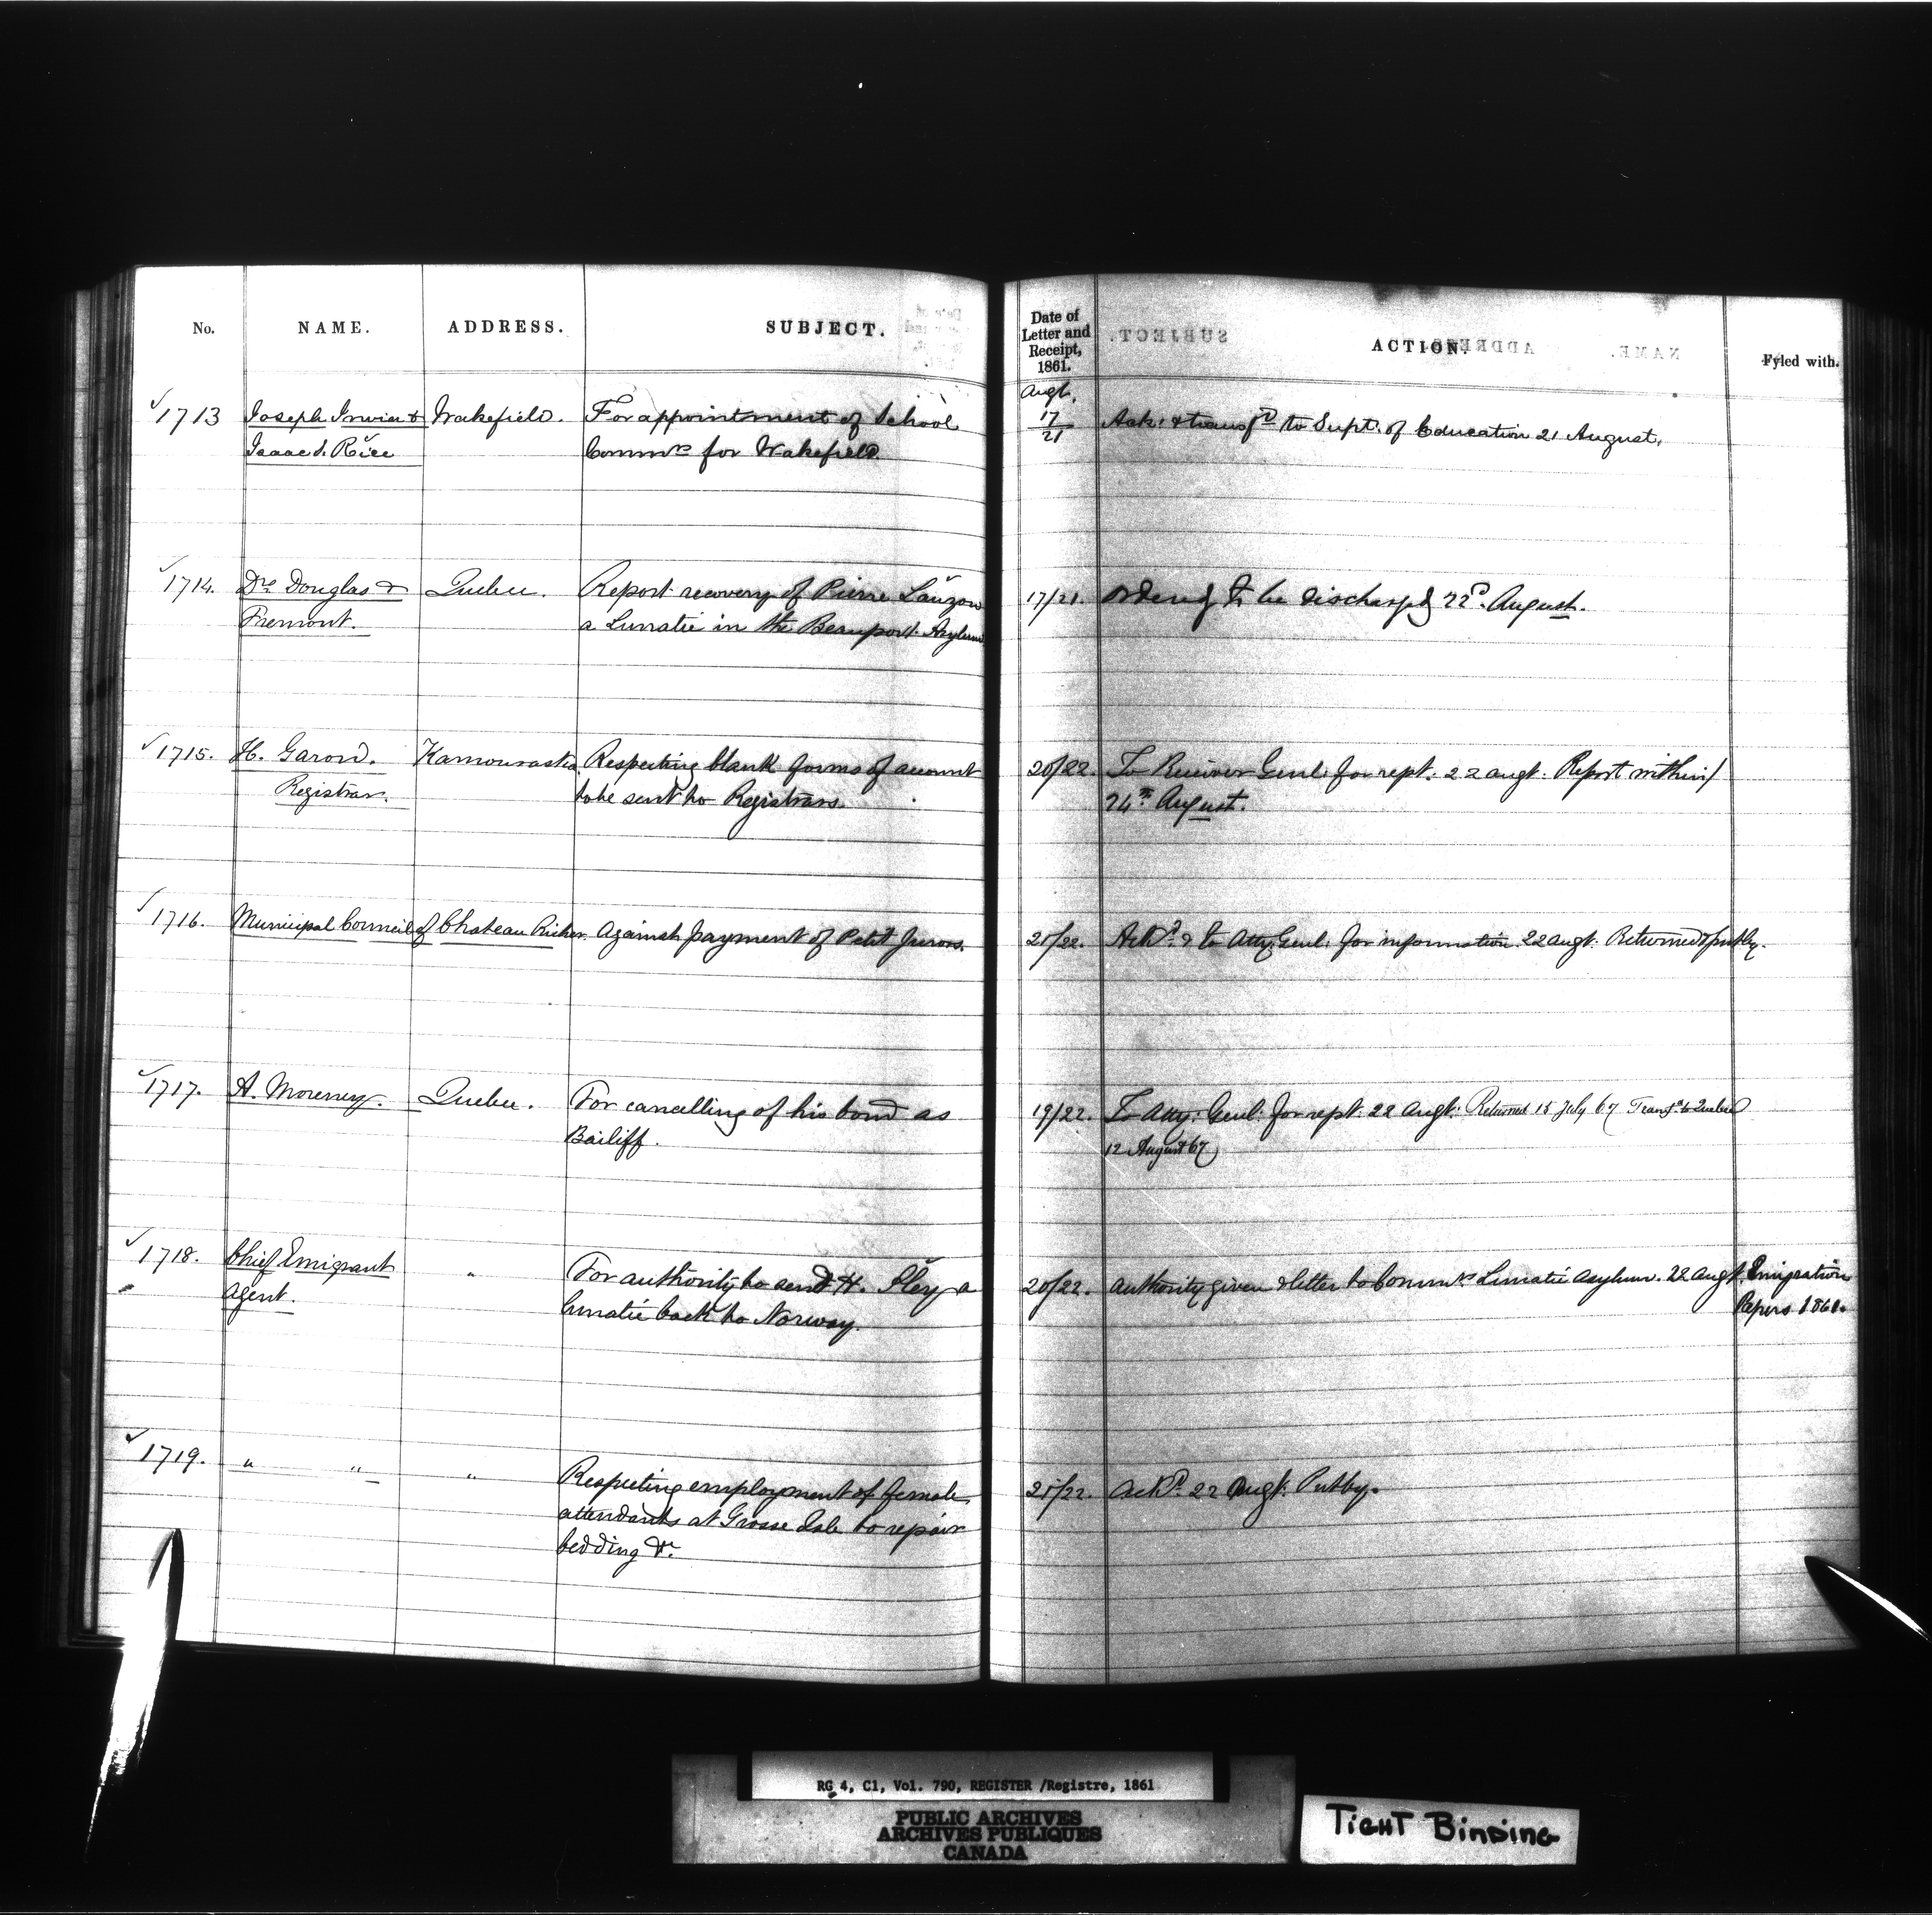 No. NAME. ADDRESS. SUBJECT. Date of Letter and Receipt, 1861. ACTION. Fyled with.
Augt.
1713 Joseph Irwin & Wakefield. For appointment of School 17/21 Ack: & transfd to Supt. of Education 21 August.
Isaac S. Rice Commrs for Wakefield.
1714. Drs Douglas & Quebec. Report recovery of Pierre Lauzon 17/21. Ordered to be discharged 22d. August.
Fremont. a Lunatic in the Beauport Asylum
1715. H. Garon. Kamouraska Respecting blank forms of account 20/22. To Receiver Genl: for rept: 22 augt: Report within/
Registrar. to be sent to Registrars. 24th August.
1716. Municipal Council of Chateau Richer. Against payment of Petit Jurors. 21/22. Ackd. & to Atty: Genl: for information. 22 augt: Returned & put by.
1717. A. Quebec. For cancelling of his bond as 19/22. To Atty: Genl: for rept: 22 Augt: Returned 15 July 67 Transfd to Quebec
Bailiff. 12 August 67
1718. Chief Emigrant " For authority to send H. a 20/22. Authority given & letter to Commrs Lunatic Asylum. 22 Augt. Emigration
Agent. lunatic back to Norway. Papers 1861.
1719. " " " Respecting employment of female 21/22. Ackd. 22 Augt: Put by.
attendants at Grosse Isle to repair
bedding &c.
RG 4, C1, Vol. 790, REGISTER /Registre, 1861
PUBLIC ARCHIVES
ARCHIVES PUBLIQUES
CANADA
TIGHT BINDING